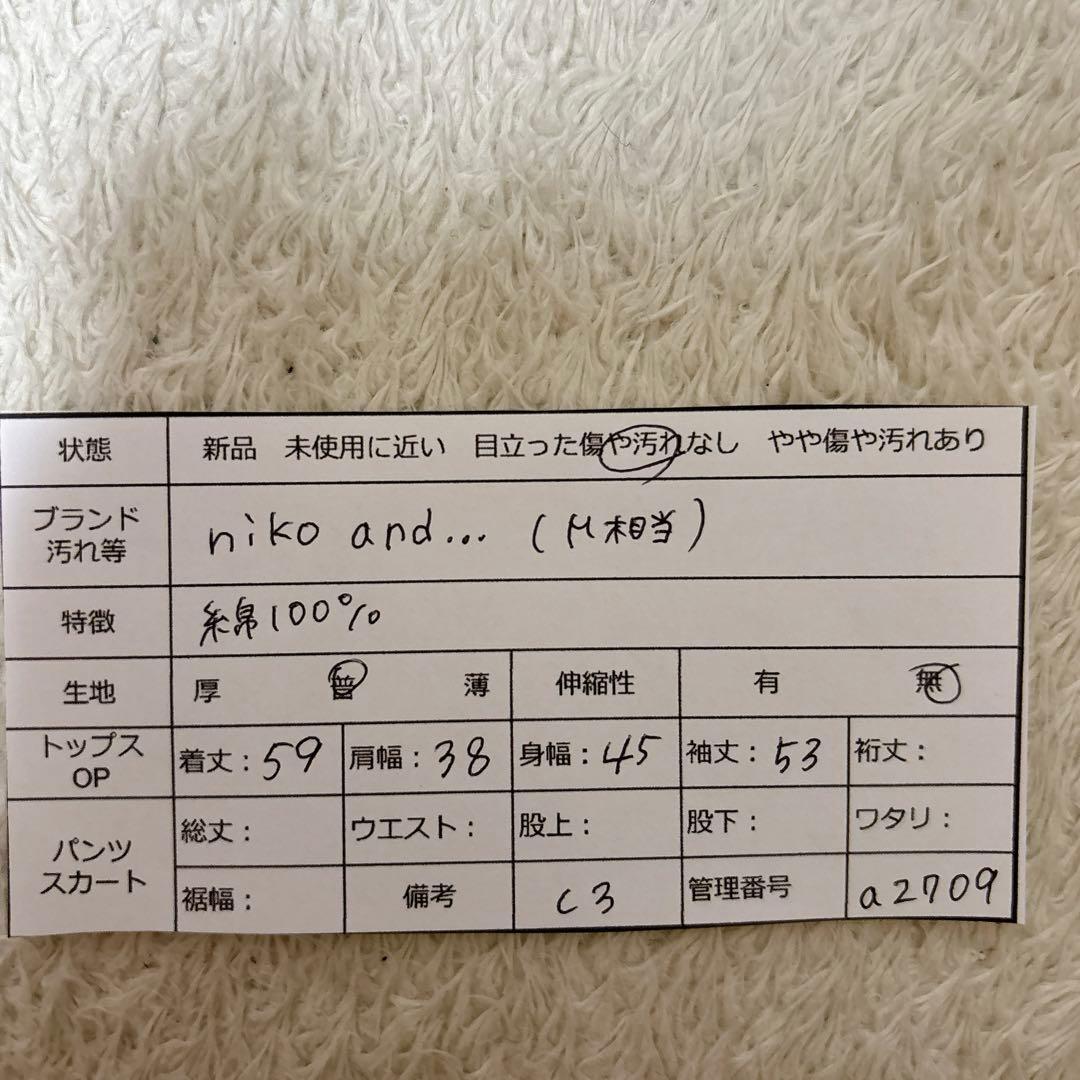 状態 新品 未使用に近い 目立った傷や汚れなし やや傷や汚れあり
ブランド
汚れ等
niko and... (M相当)
特徴 綿100%
生地 厚 普 薄 伸縮性 有 無
トップス
OP
着丈:59 肩幅:38 身幅:45 袖丈:53 裄丈:
パンツ
スカート
総丈: ウエスト: 股上: 股下: ワタリ:
裾幅: 備考 c3 管理番号 a2709